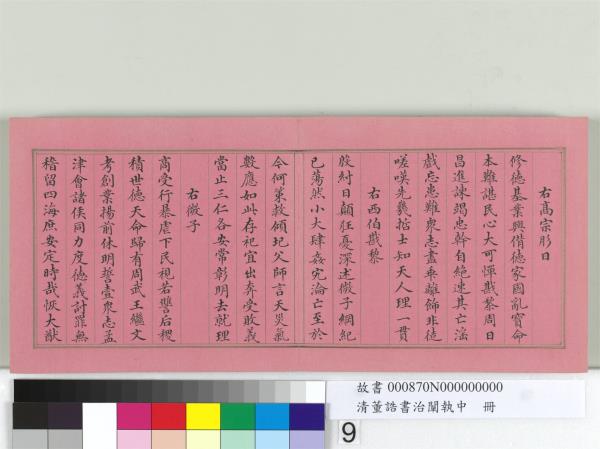 右高宗肜日
修德基業興僭德家國亂寶命
本難諶民心大可憚戡黎周日
昌進諫竭忠幹自絕速其亡滛
戲忘患難眾志盡乖離飾非徒
嗟嘆先幾拈士知天人理一貫
右西伯戡黎
殷紂日顛狂憂深述微子綱紀
已蕩然小大肆姦宄淪亡至於
今何策救傾圮父師言天災氣
數應如此存祀宜出奔受敗義
當止三仁各安常彰明去就理
右微子
商受行暴虐下民視若讐后稷
積世德天命歸有周武王繼文
考創業揚前休明誓壹眾志孟
津會諸侯同力度德義討罪無
稽留四海庶安定時哉恢大猷
故書 000870N000000000
清董誥書治闈執中 冊
9